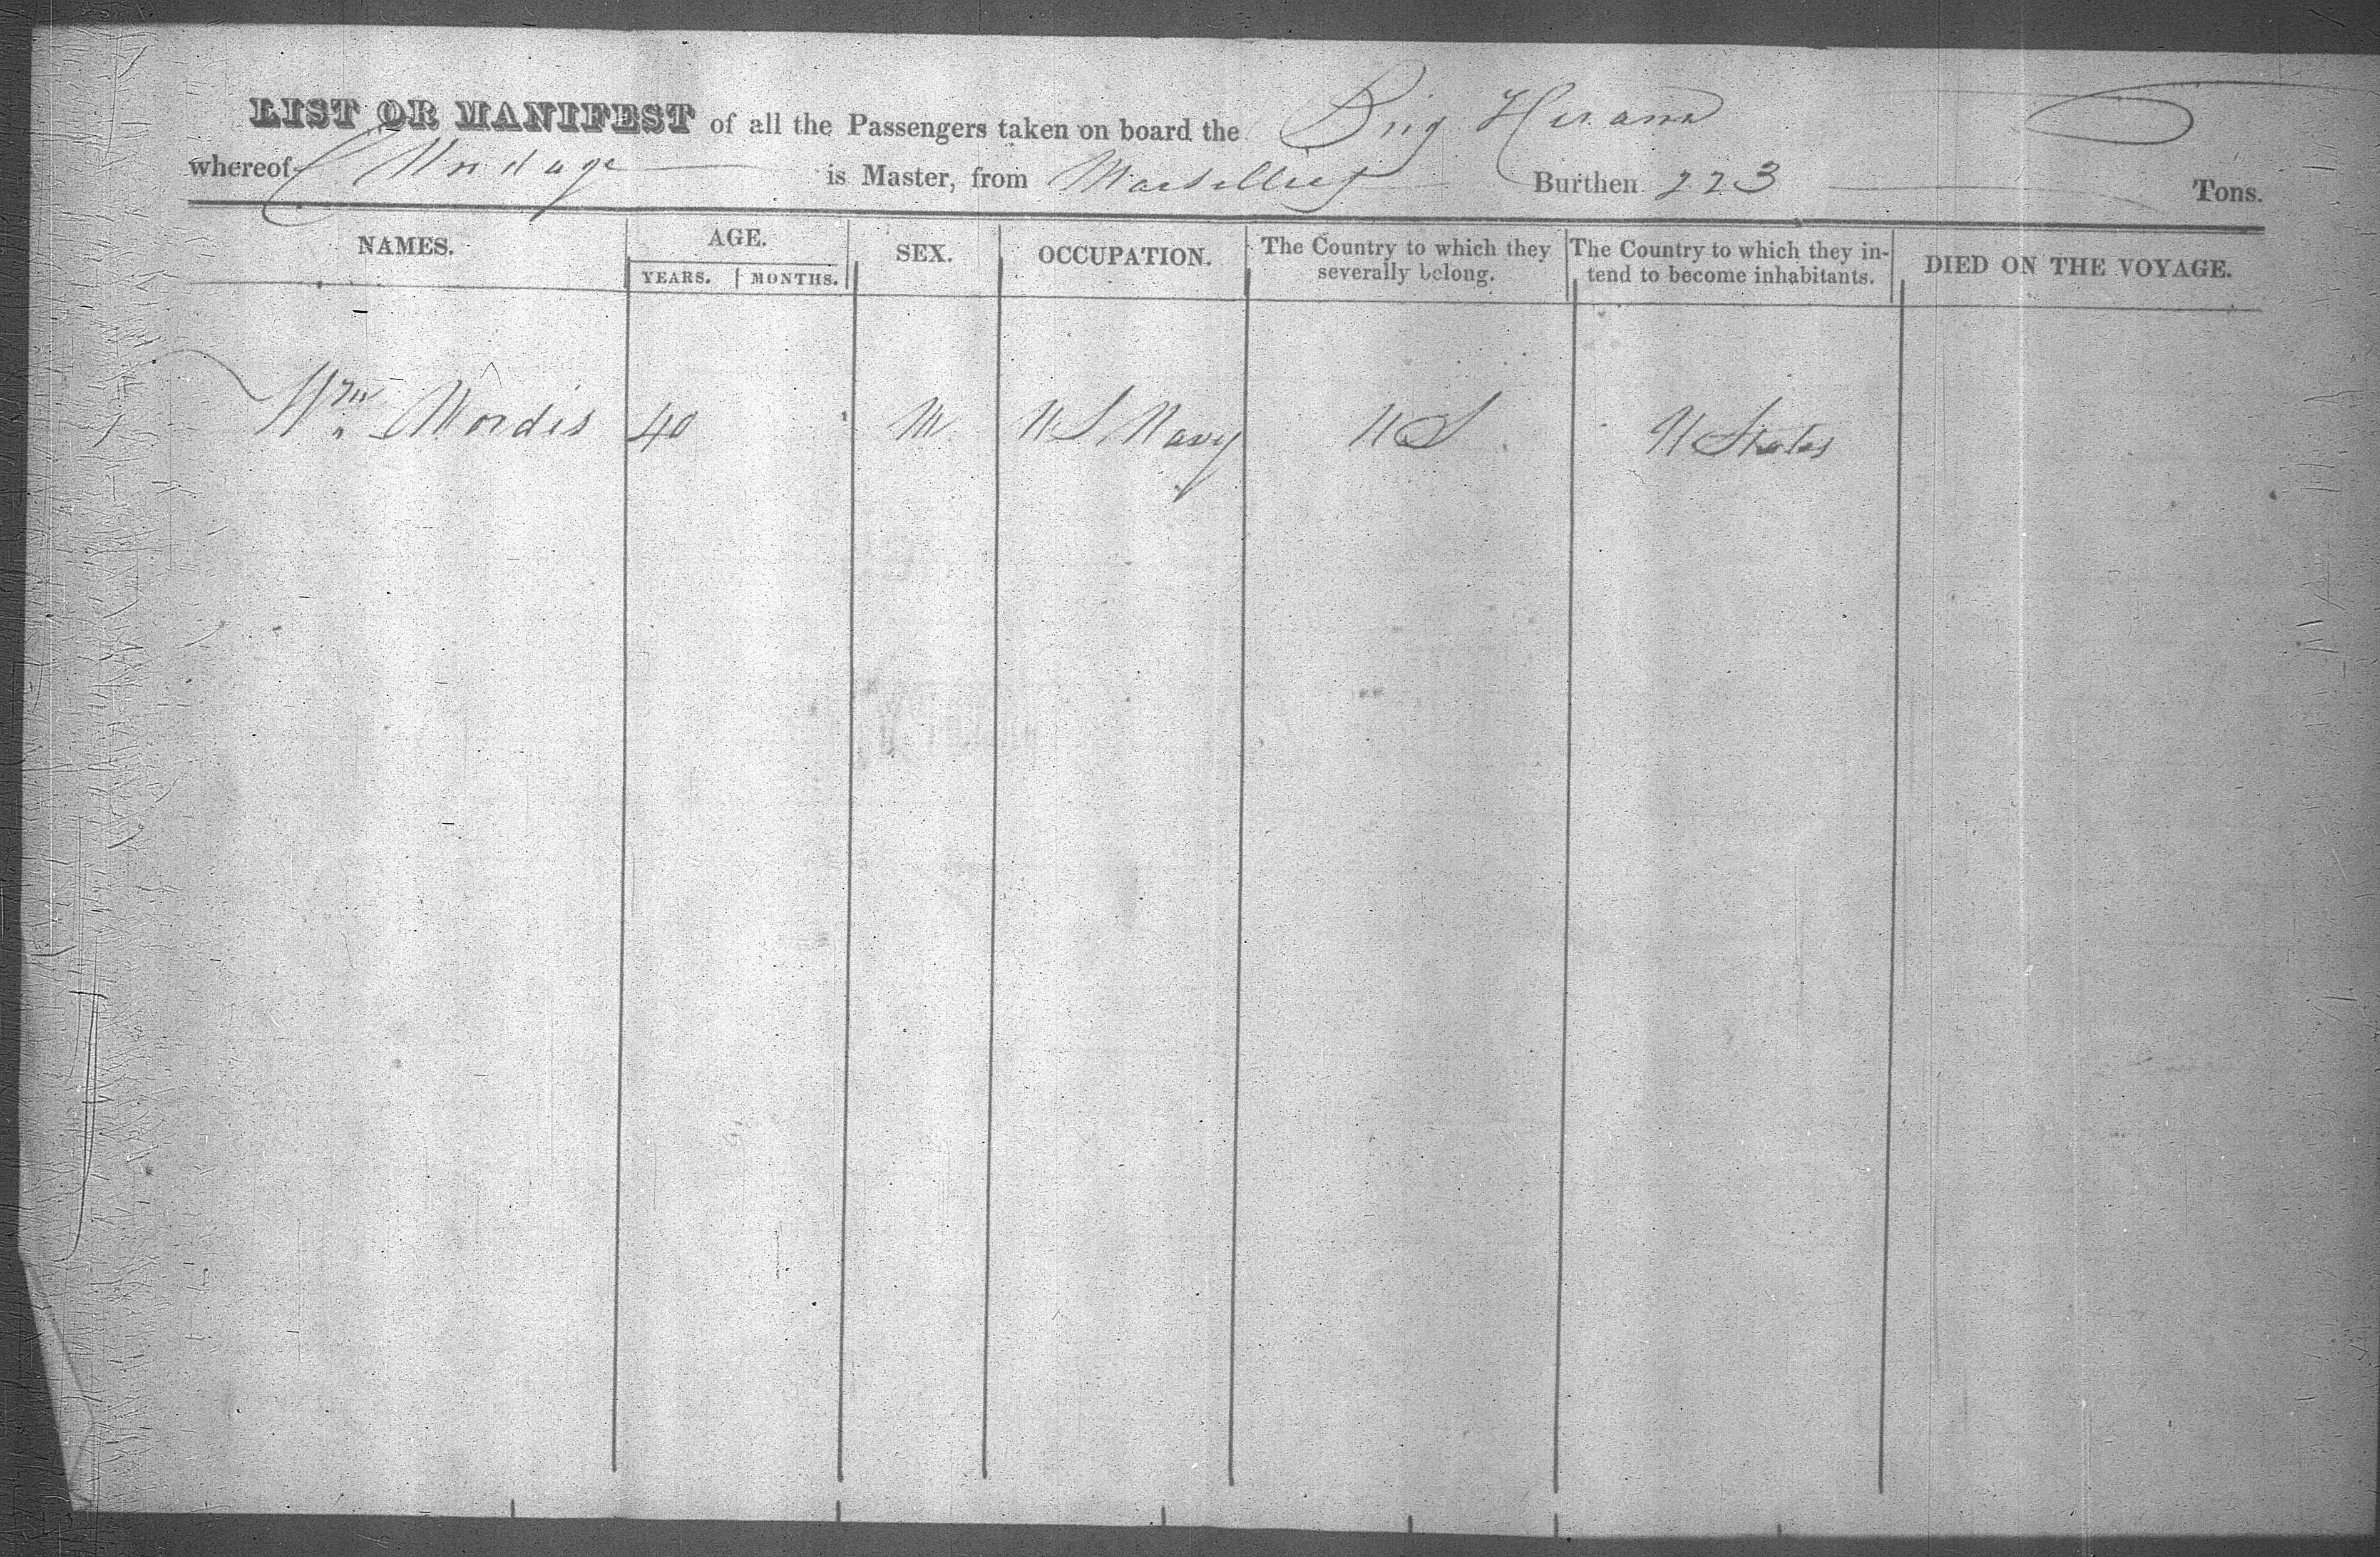 LIST OR MANIFEST of all the Passengers taken on board the Brig Hiram
whereof is Master, from Marseilles Burthen 223 Tons.
NAMES. AGE. SEX. OCCUPATION. The Country to which they severally belong. The Country to which they in-tend to become inhabitants. DIED ON THE VOYAGE.
YEARS. MONTHS.
Wm 40 M U S. Navy U S U States